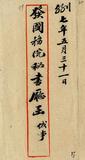 七年五月三十一日
發國務院秘書廳函 代事